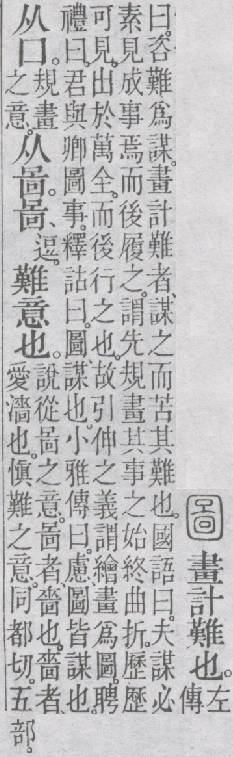 圖 畫計難也。左傳
曰。咨難爲謀。畫計難者、謀之而苦其難也。國語曰。夫謀必
素見成事焉而後履之。謂先規畫其事之始終曲折。歷歷
可見。出於萬全。而後行之也。故引伸之義謂繪畫爲圖。聘
禮曰。君與卿圖事。釋詁曰。圖、謀也。小雅傳曰。慮圖皆謀也。
从囗。規畫之意。从啚。啚、逗。難意也。說從啚之意。啚者嗇也。嗇者愛濇也。愼難之意。同都切。五部。